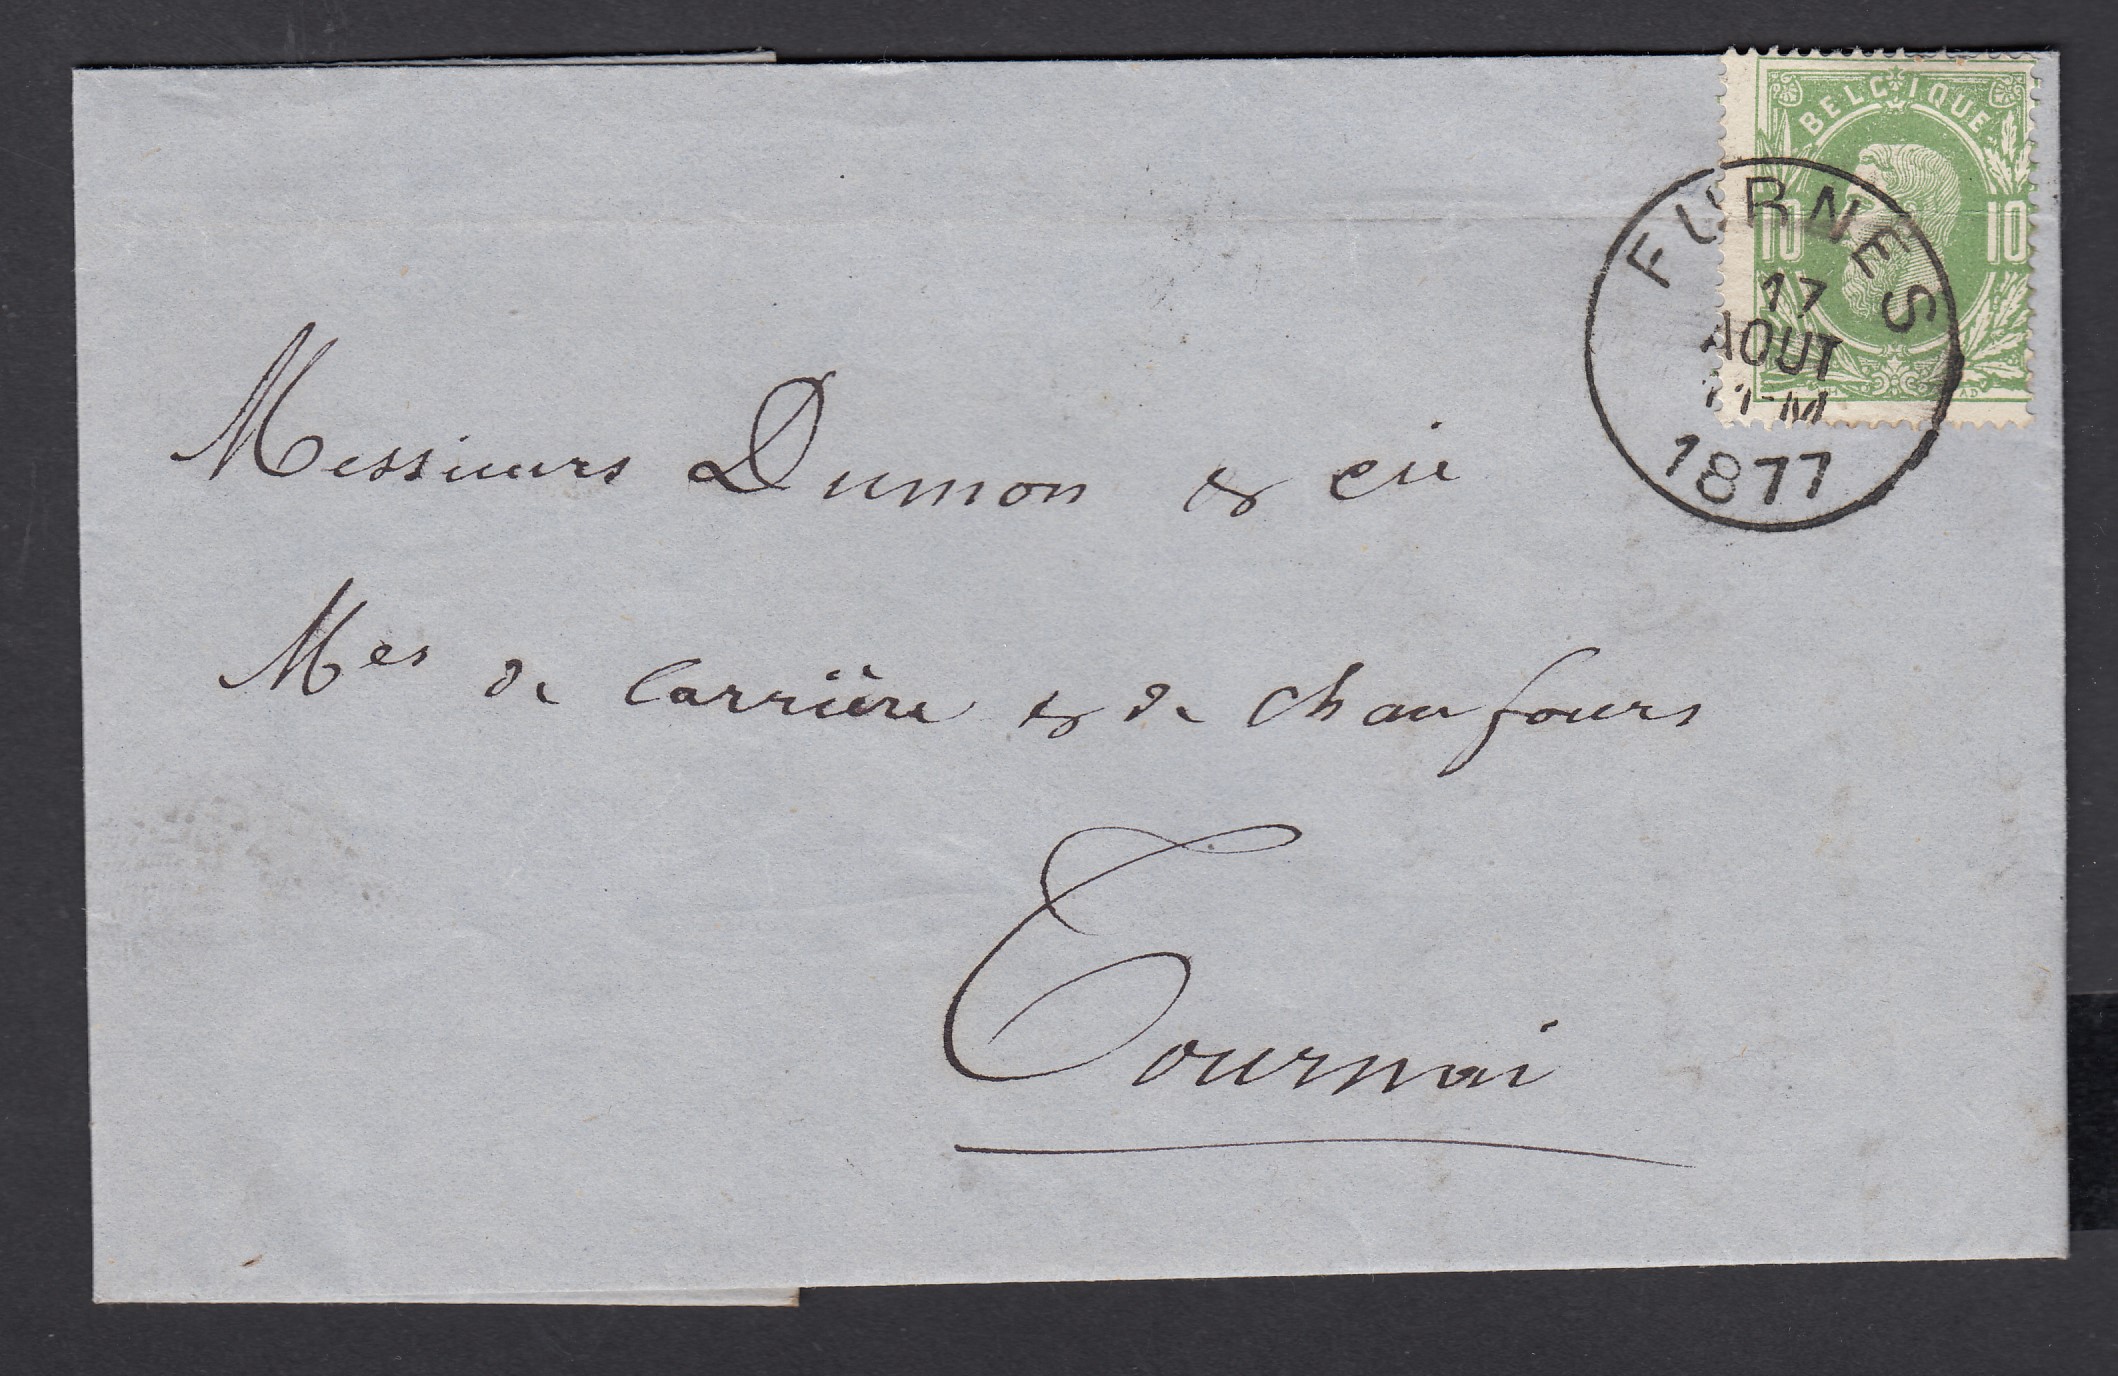 BELGIQUE
10 10
FURNES
17
AOUT
-M
1877
Messieurs Dumon & cie
Mes de carrière & de chaufours
Tournai